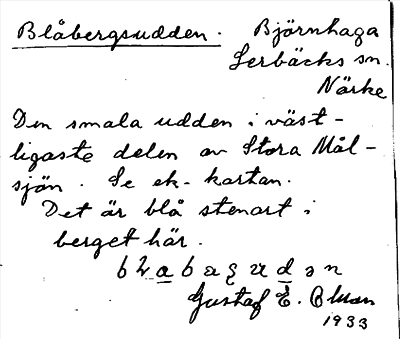 Blåbergsudden. Björnhaga
Lerbäcks sn.
Närke
Den smala udden i väst-
ligaste delen av Stora Mål-
sjön. Se ek-kartan.
Det är blå stenart i
berget här.
Gustaf E.
1933